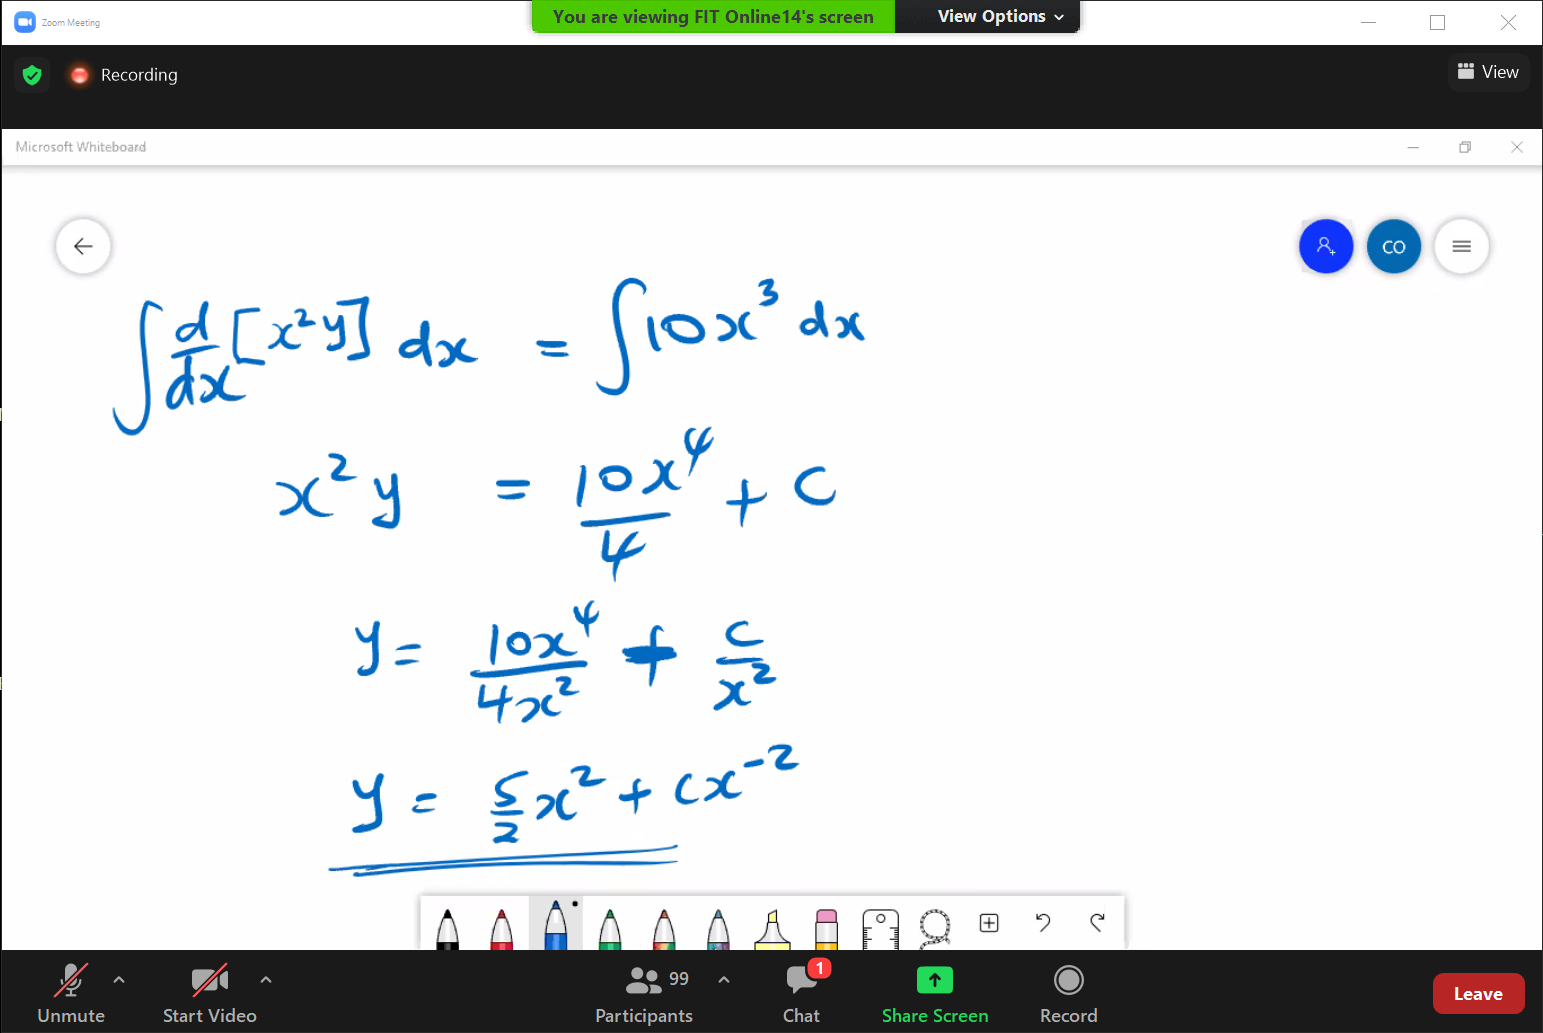 Zoom Meeting
You are viewing FIT Online14's screen View Options
Recording
View
Microsoft Whiteboard
CO
∫ d/dx [x²y] dx = ∫ 10x³ dx
x²y = 10x⁴/4 + C
y = 10x⁴/4x² + C/x²
y = 5/2 x² + Cx⁻²
99
1
Unmute
Start Video
Participants
Chat
Share Screen
Record
Leave